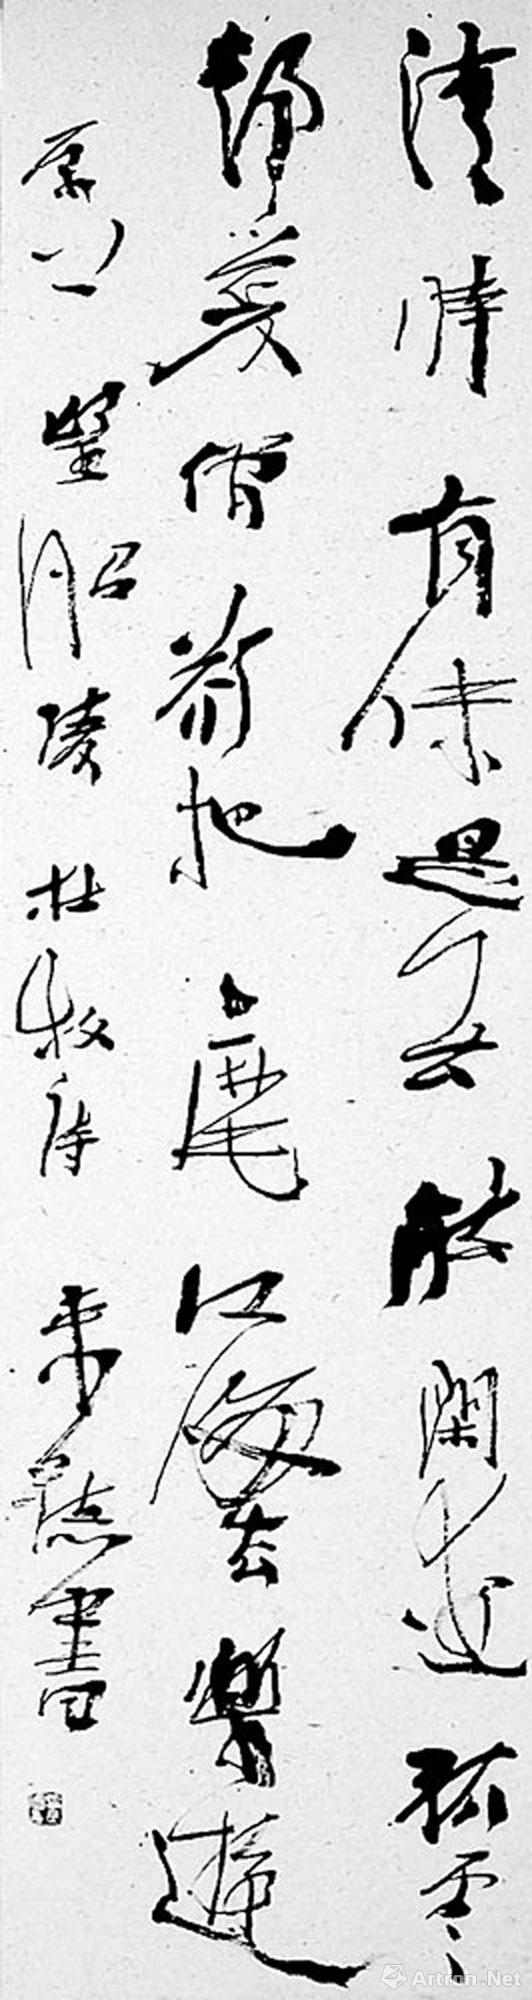 清時有味是无能閑愛孤雲
靜愛僧欲把一麾江海去樂遊
原上望昭陵杜牧诗書
Artron.Net